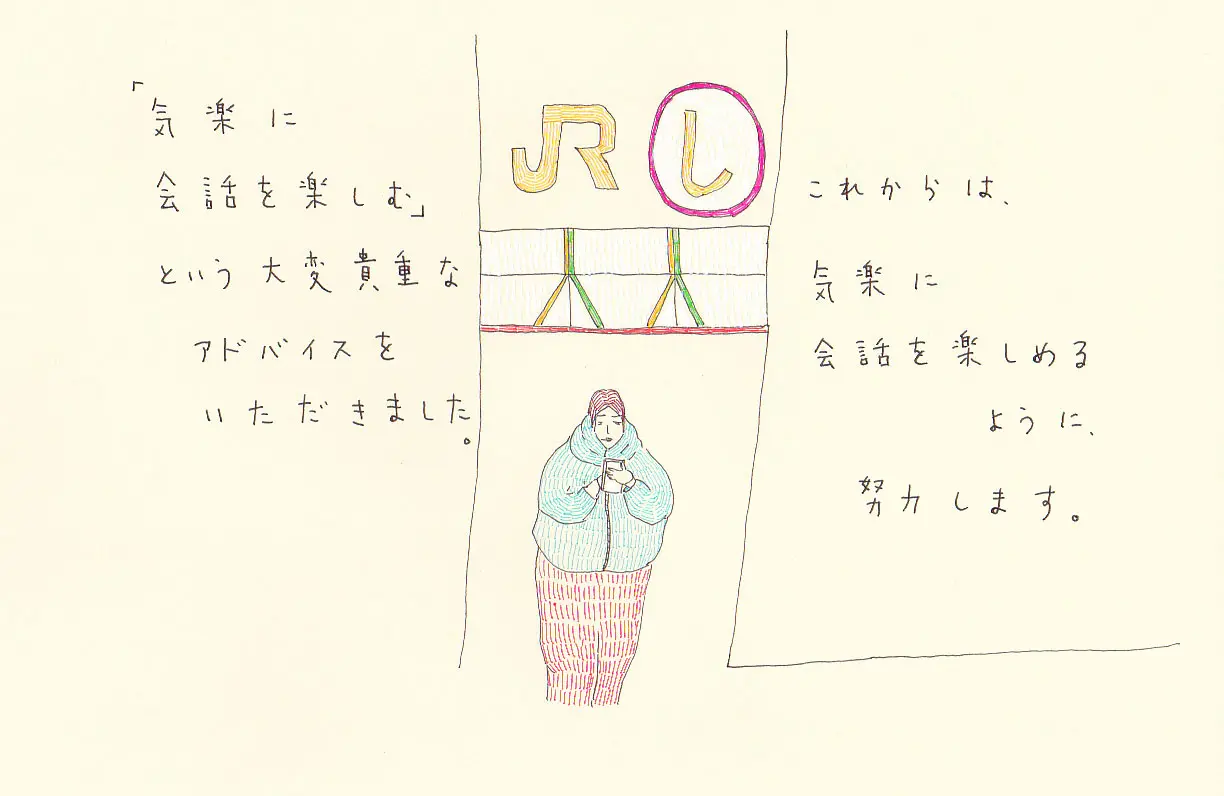 「気楽に
会話を楽しむ」
という大変貴重な
アドバイスを
いただきました。
JR し
これからは、
気楽に
会話を楽しめる
ように、
努力します。